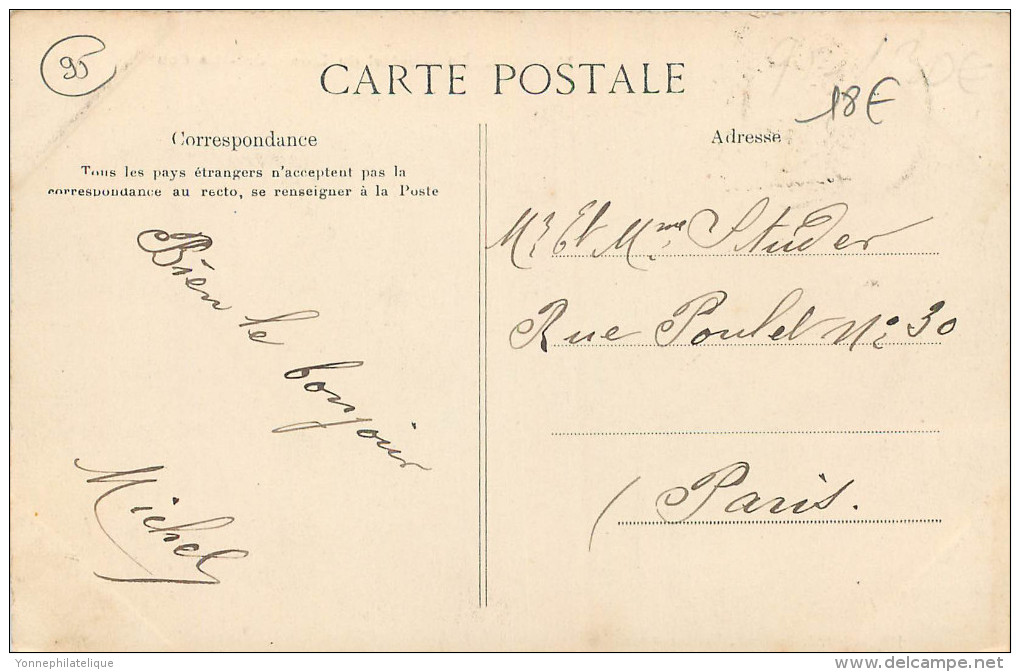 95
CARTE POSTALE
18€
Correspondance
Tous les pays étrangers n'acceptent pas la
correspondance au recto, se renseigner à la Poste
Bien le bonjour
Michel
Adresse
Mr. Et Mme Studer
Rue Poulet No 30
Paris.
Yonnephilatelique
www.delcampe.net